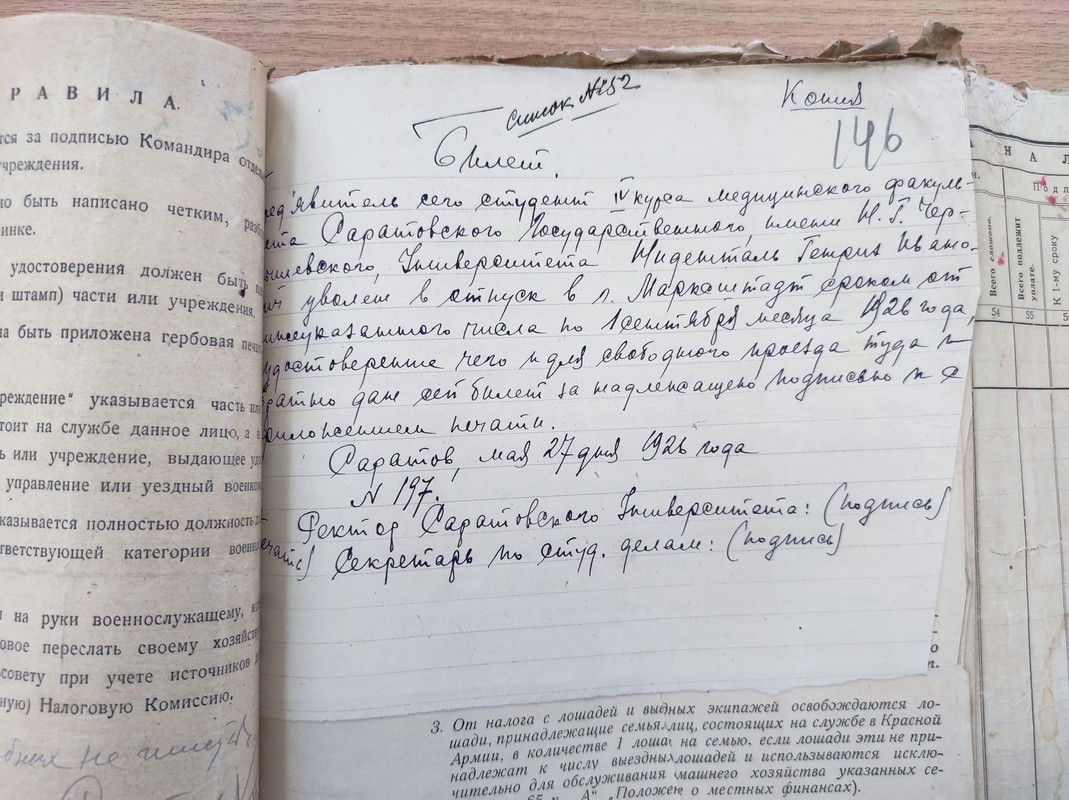 РАВИЛА.
тся за подписью Командира отдель
учреждения.
но быть написано четким, разб
инке.
удостоверения должен быть по
и штамп) части или учреждения.
на быть приложена гербовая печа
реждение" указывается часть или
тоит на службе данное лицо, а в
ь или учреждение, выдающее удо
управление или уездный военком
казывается полностью должность
тветствующей категории военно
и на руки военнослужащему,
овое переслать своему хозяйству
ьсовету при учете источников д
ную) Налоговую Комиссию.
не
Список №52
Копия
146
Билет.
ред'явитель сего студент IV курса медицинского факуль-
ета Саратовского Государственного, имени Н. Г. Чер-
ышевского, Университета Миденталь Генрих Ивано-
ич уволен в отпуск в г. Марксштадт сроком от
ижеуказанного числа по 1 сентября месяца 1926 года,
удостоверение чего и для свободного проезда туда и
братно дан сей билет за надлежащею подписью и с
риложением печати.
Саратов, мая 27 дня 1926 года
N 197.
Ректор Саратовского Университета: (подпись)
ечать) Секретарь по студ. делам: (подпись)
3. От налога с лошадей и выездных экипажей освобождаются ло-
шади, принадлежащие семьям лиц, состоящих на службе в Красной
Армии, в количестве 1 лошади на семью, если лошади эти не при-
надлежат к числу выездных лошадей и используются исклю-
чительно для обслуживания домашнего хозяйства указанных се-
65 п. „А" „Положен о местных финансах).
Н А Л
Подл
Всего сложено.
Всего подлежит уплате.
К 1-му сроку
54
55